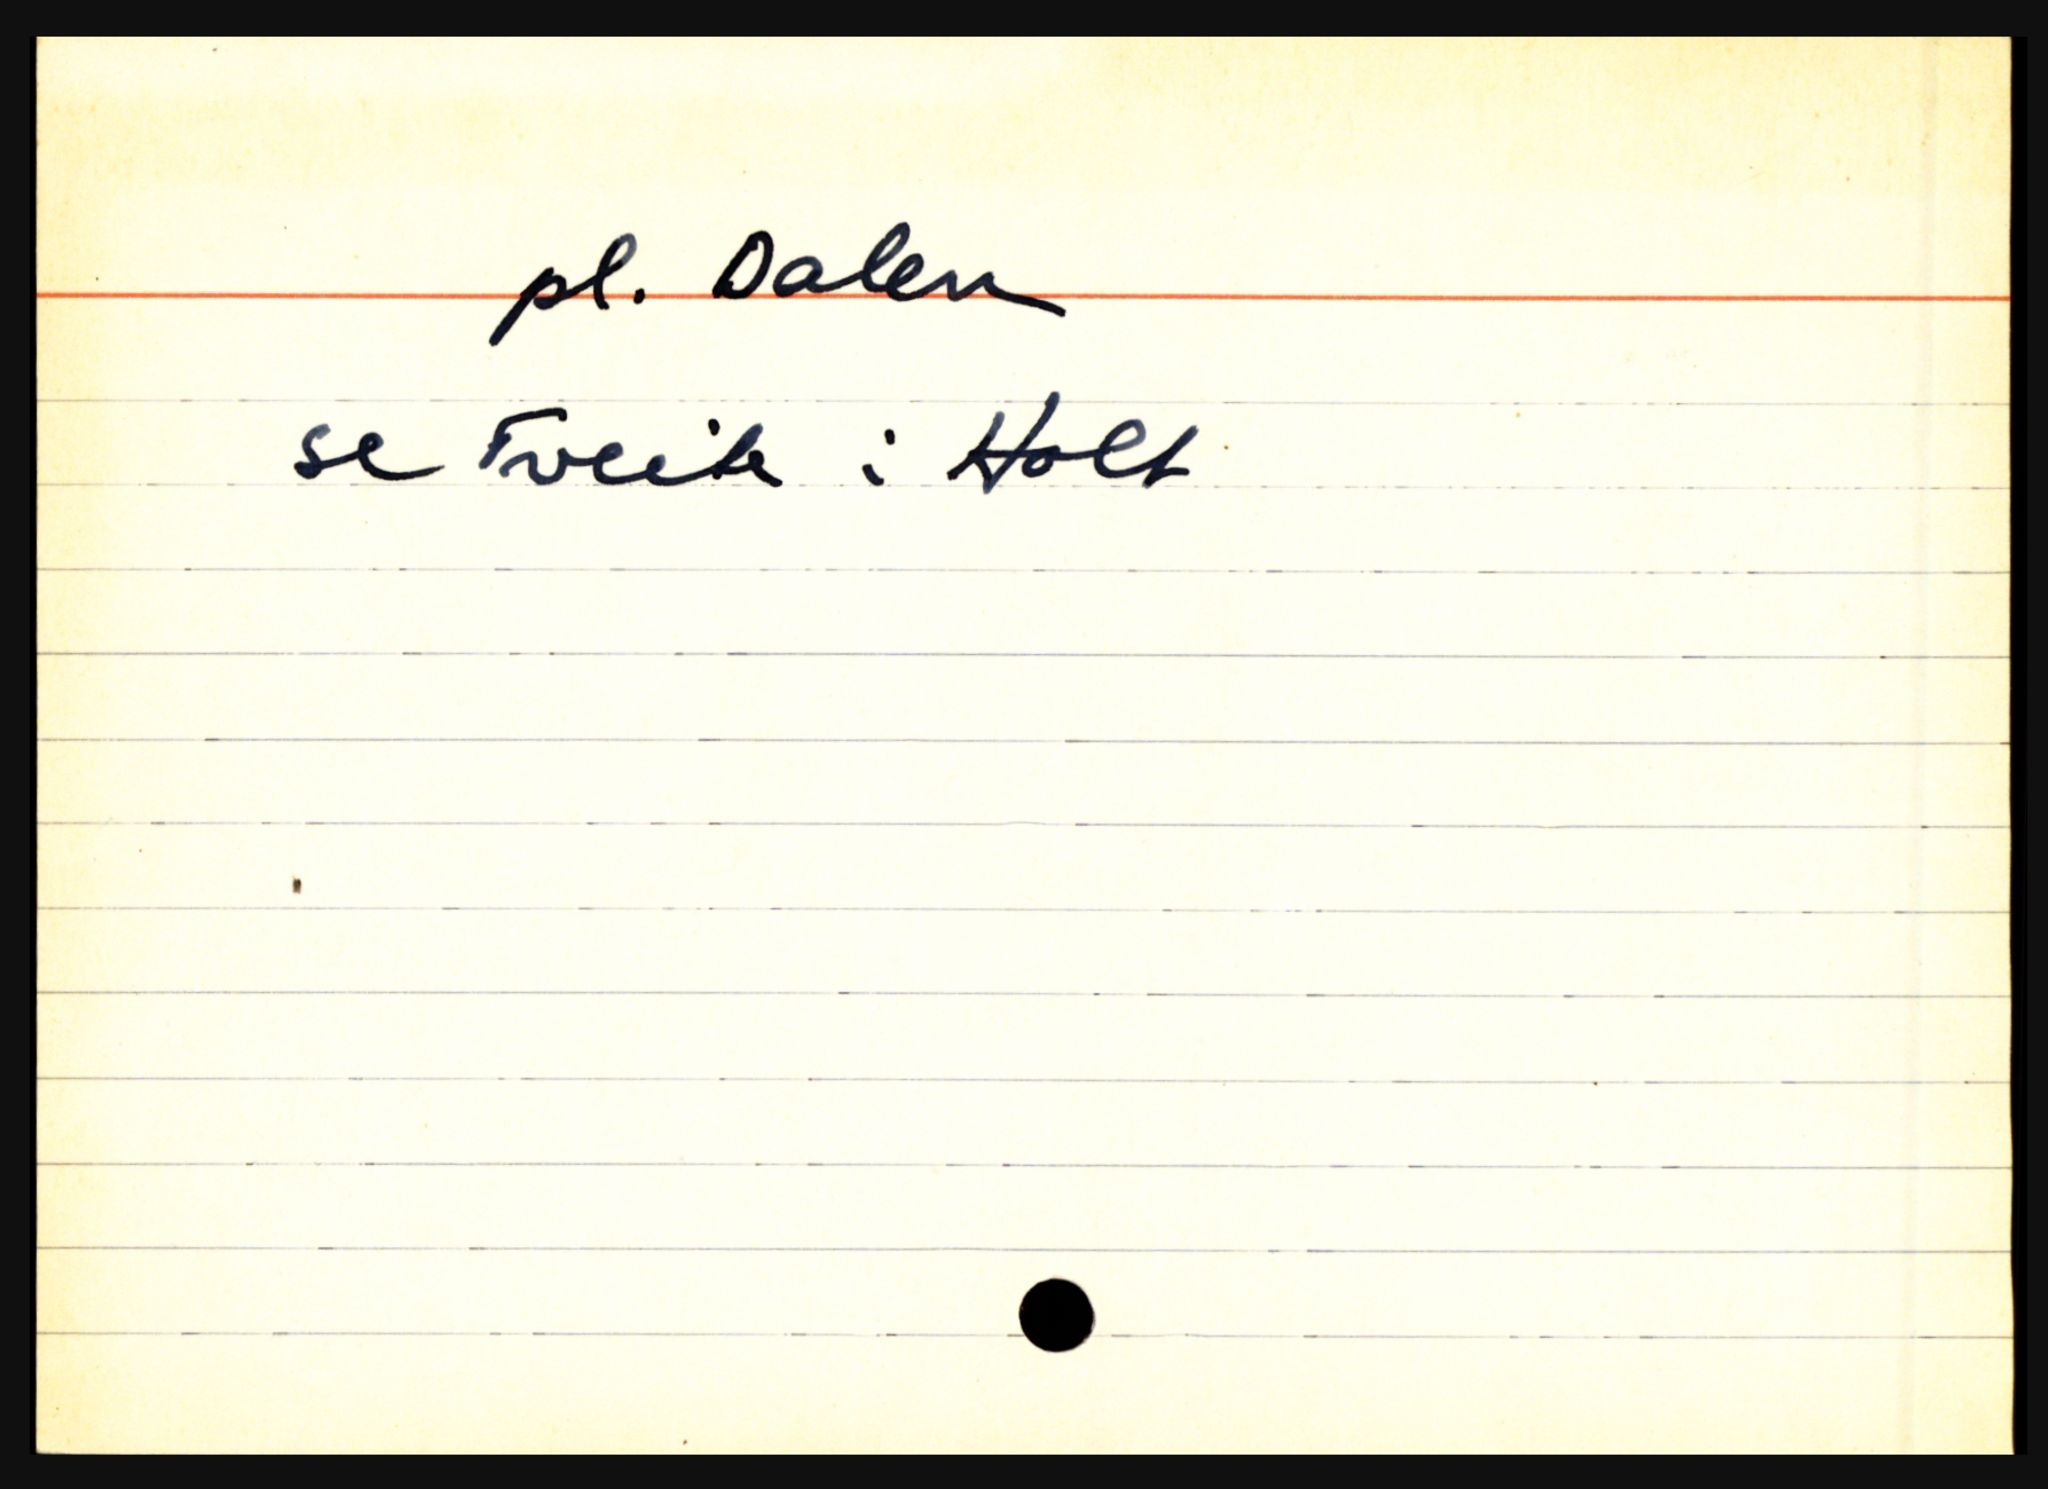 pl. Dalen
se Tveite i Holt